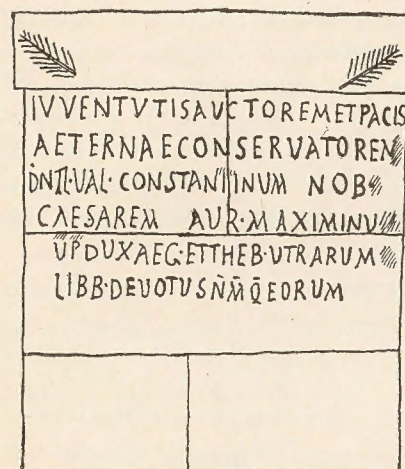 IVVENTVTISAVCTOREMETPACIS
AETERNAECONSERVATOREM
D̄N̄ FL·VAL· CONSTANTINUM NOB
CAESAREM AUR·MAXIMINU
VP DUXAEG·ETTHEB·UTRARUM
LIBB·DEVOTUSN̄M̄Q̄EORUM